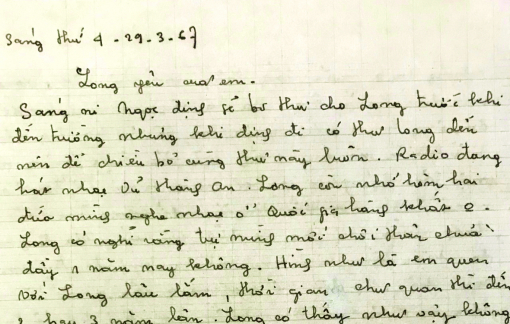 Sáng thứ 4 - 29.3.67
Long yêu của em.
Sáng ni Ngọc định sẽ bỏ thư cho Long trước khi
đến trường nhưng khi định đi có thư Long đến
nên để chiều bỏ cùng thư này luôn. Radio đang
hát nhạc Vũ Thành An. Long còn nhớ hôm hai
đứa mình nghe nhạc ở Quốc gia hàng
Long có nghĩ rằng tụi mình mới chơi thân chưa
đầy 1 năm nay không. Hình như là em quen
với Long lâu lắm, thời gian như quan thì đến
2 hay 3 năm lận. Long có thấy như vậy không